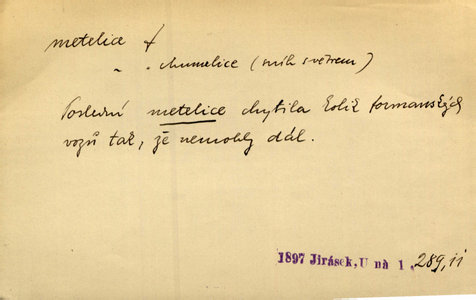 metelice f
„ . chumelice (sníh s větrem)
Poslední metelice chytila tolik formanských
vozů tak, že nemohly dál.
1897 Jirásek, U nà 1, 289, ii